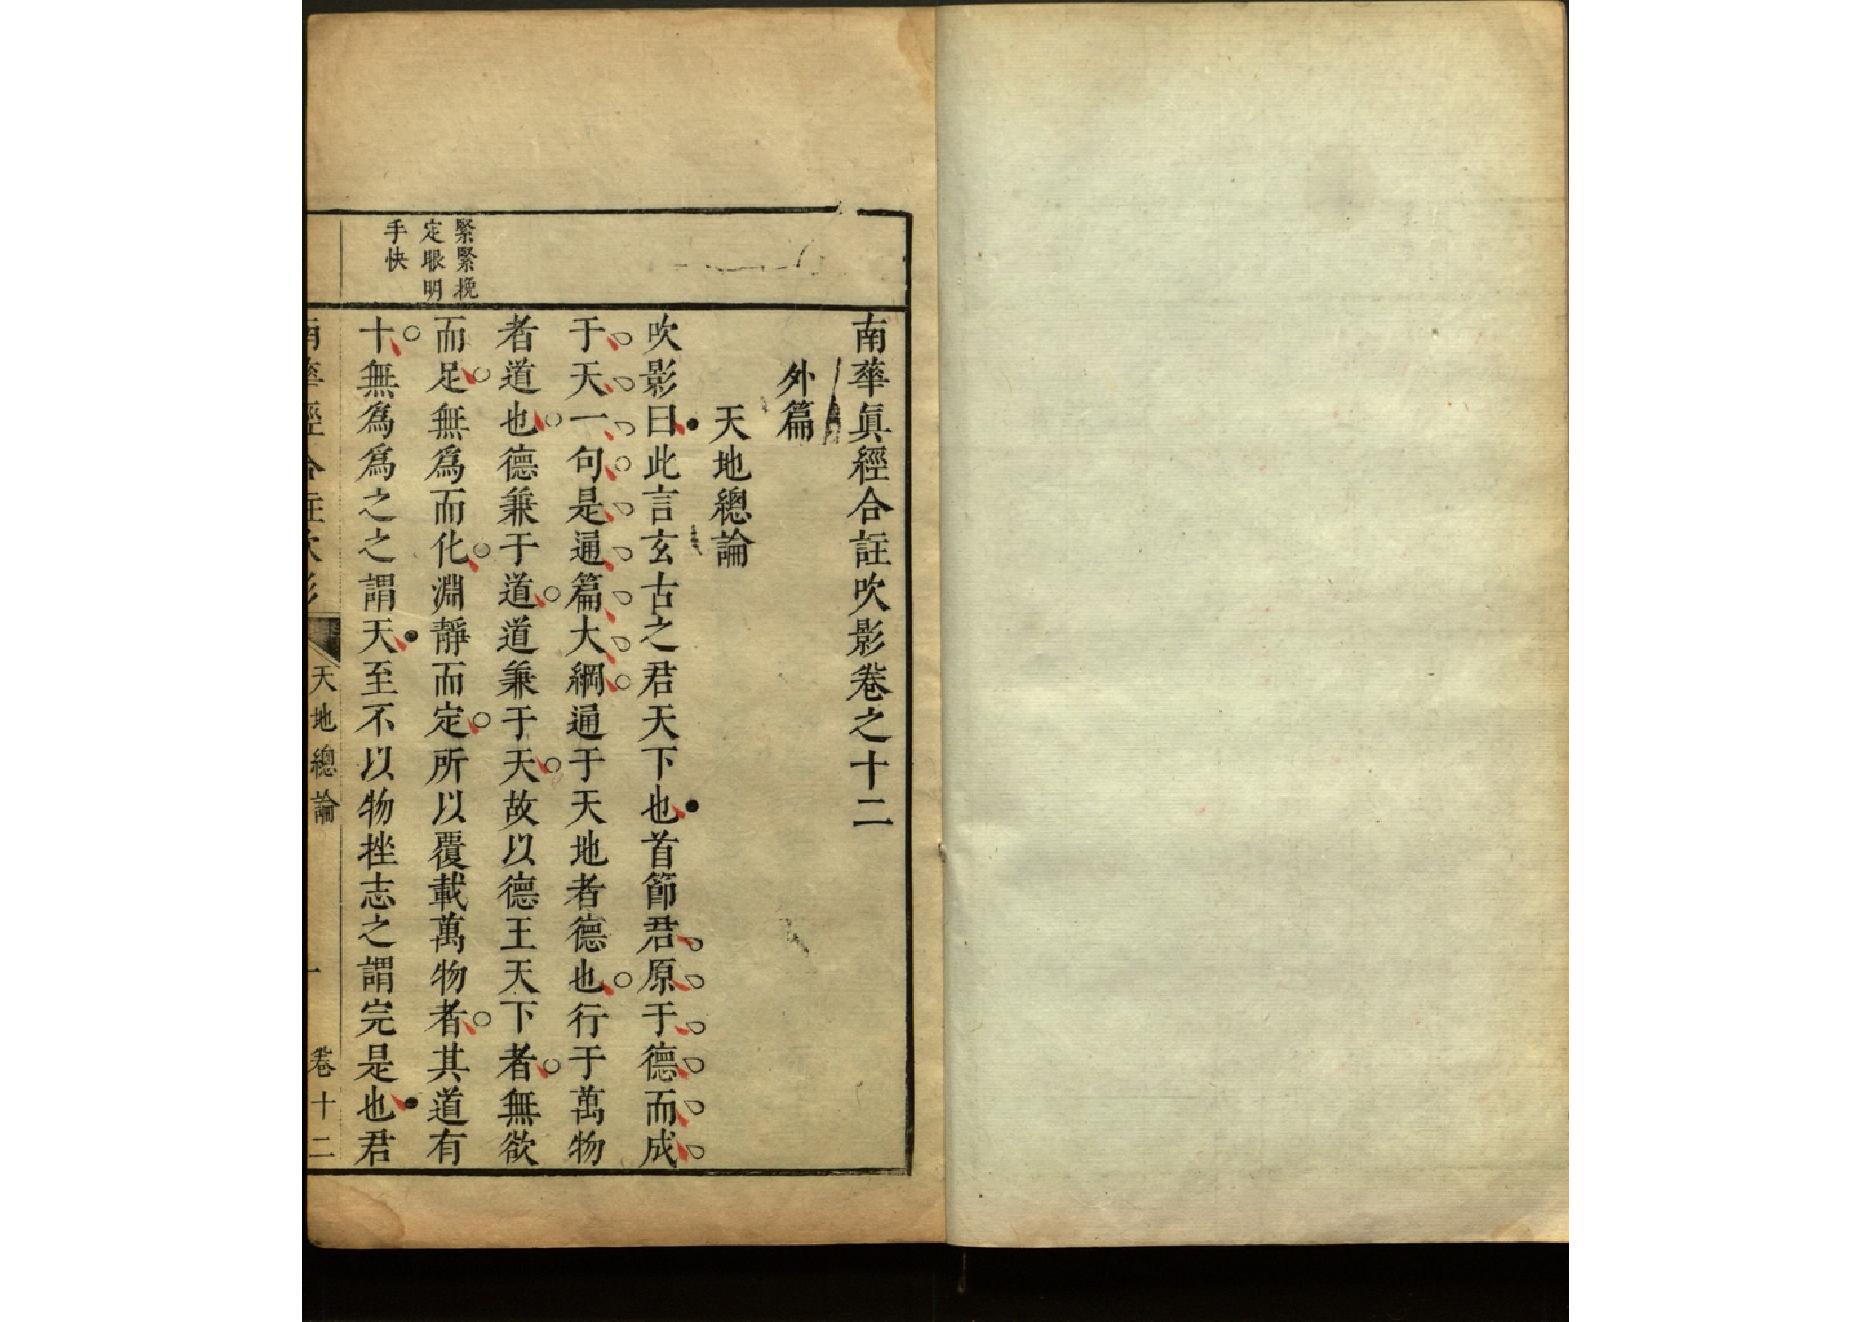 南華眞經合註吹影卷之十二
外篇
天地總論
吹影曰此言玄古之君天下也首節君原于德而成
于天一句是通篇大綱通于天地者德也行于萬物
者道也德兼于道道兼于天故以德王天下者無欲
而足無爲而化淵靜而定所以覆載萬物者其道有
十無爲爲之之謂天至不以物挫志之謂完是也君
緊緊挽
定眼明
手快
南華經合註吹影
天地總論
一
卷十二